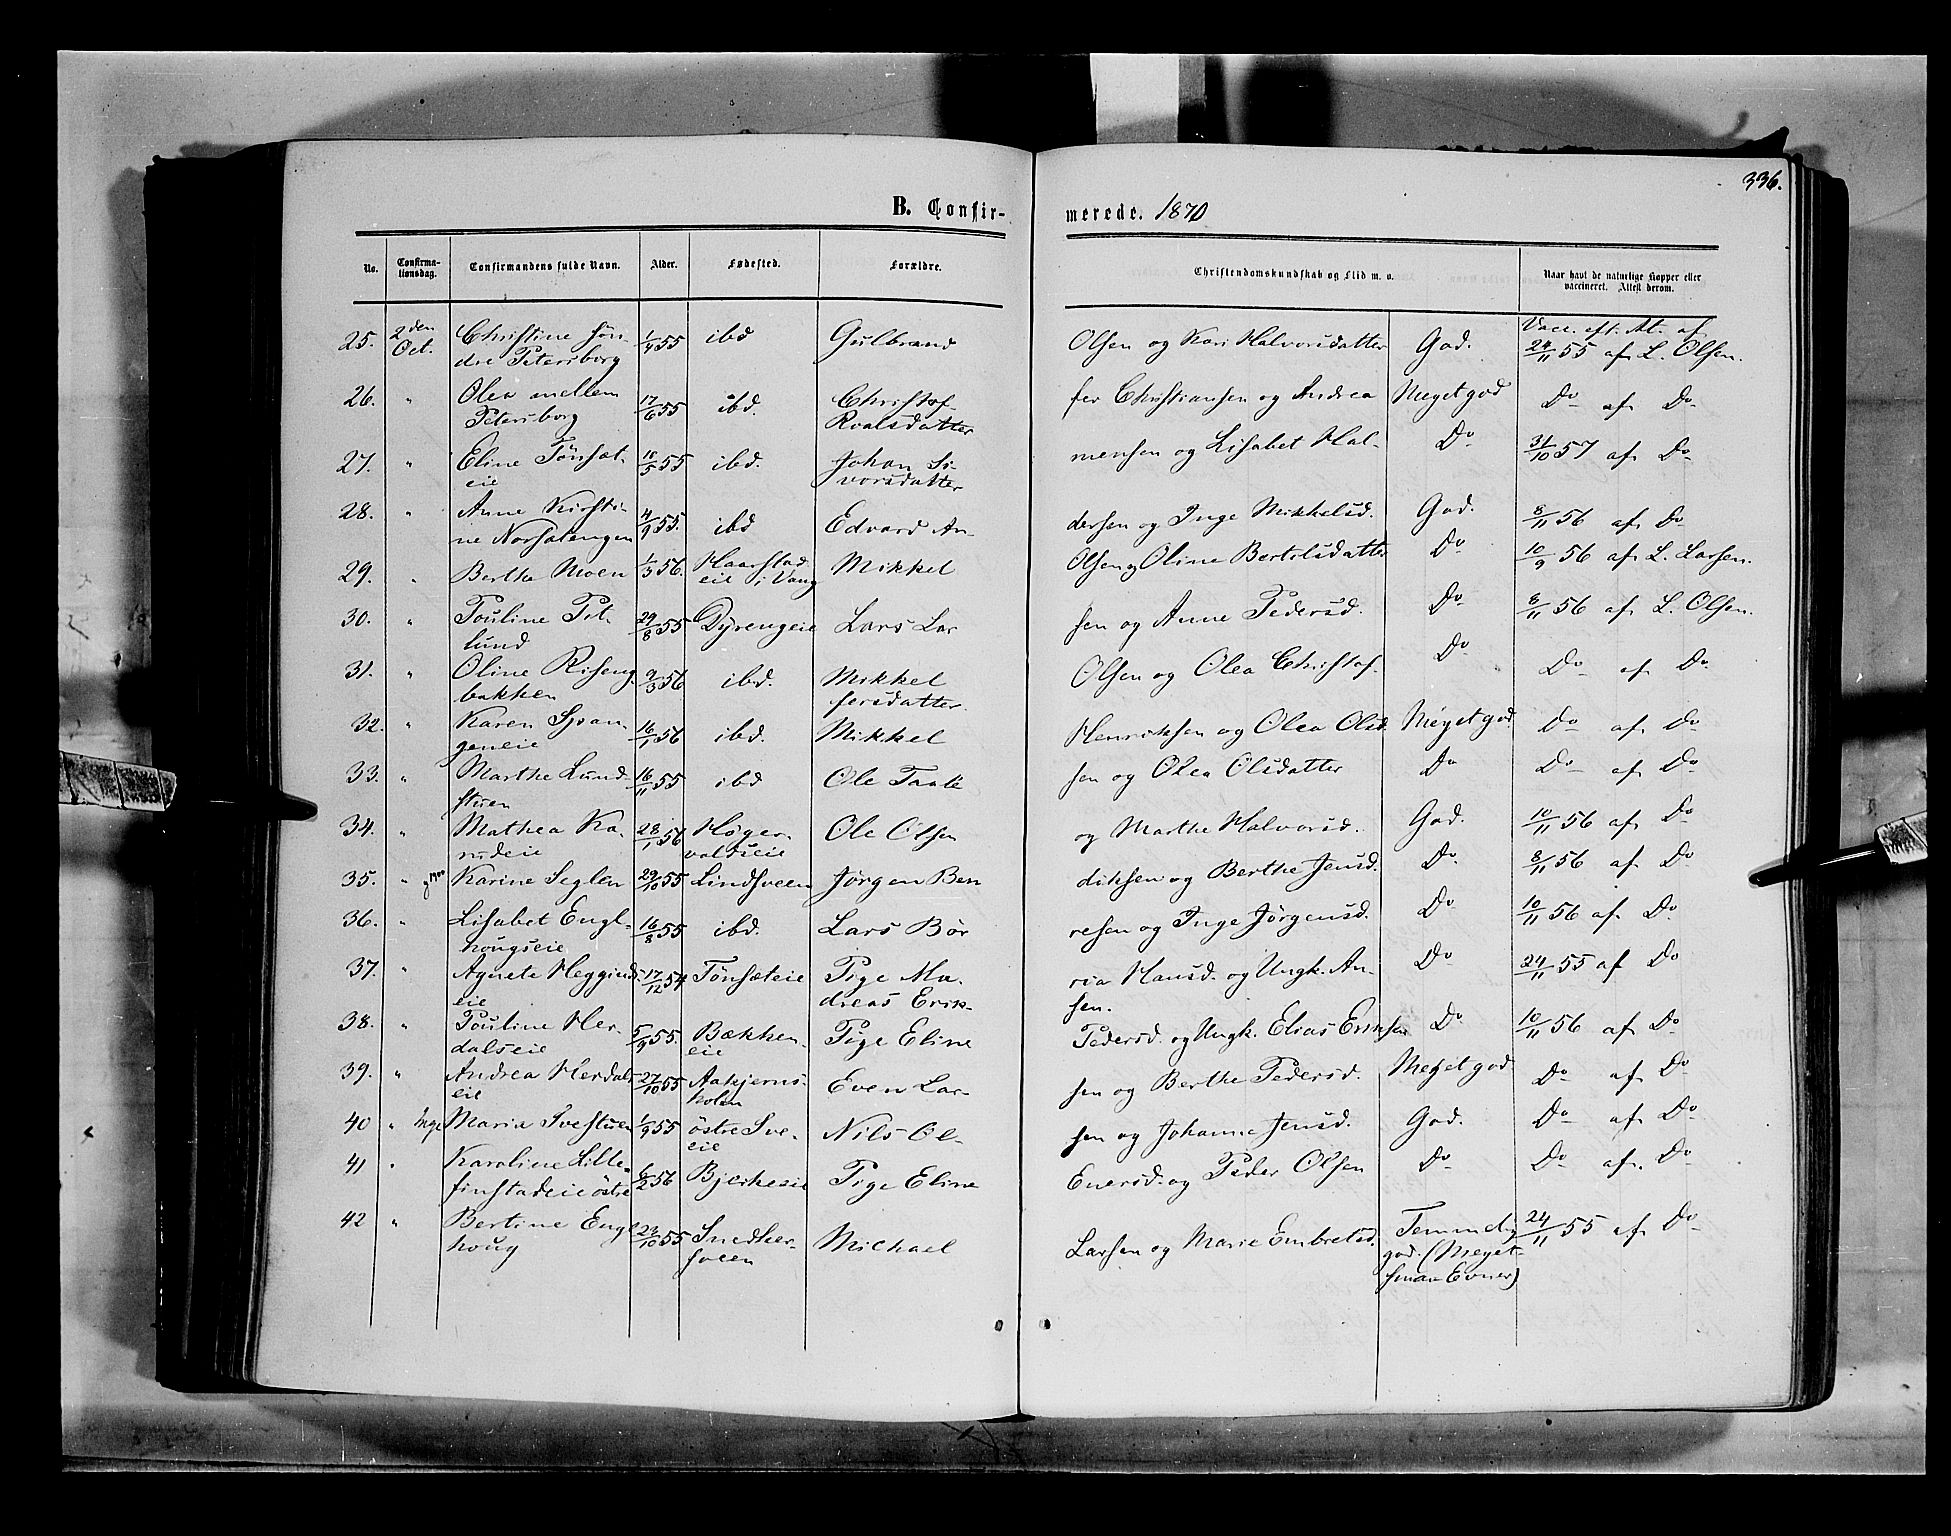 336.
B. Confirmerede. 1870
No. Confirmationsdag. Confirmandens fulde Navn. Alder. Fødested. Forældre. Christendomskundskab og Flid m. v. Naar havt de naturlige Kopper eller vaccineret. Attest derom.
25. 2den Oct. Christine Søndre Petersborg 1/4 55 ibd Gulbrand Olsen og Kari Halvorsdatter God. Vacc. eft. At. af 24/11 55 af L. Olsen.
26. " Olea mellem Petersborg 17/6 55 ibd. Christoffer Christiansen og Andrea Roalsdatter Meget god Do af Do
27. " Eline Tønsæteie 10/5 55 ibd. Johan Simensen og Lisabet Halvorsdatter Do 31/10 57 af Do
28. " Anne Kirstine Norsalengen 4/9 55. ibd Edvard Andersen og Inge Mikkelsd. God. 8/11 56 af Do
29. " Berthe Moen 1/3 56. Haarstadeie i Vang Mikkel Olsen og Oline Bertelsdatter Do 10/9 56 af L. Larsen.
30. " Pouline Petlund 29/8 55 Dyrengeie Lars Larsen og Anne Pedersd. Do 8/11 56 af L. Olsen.
31. " Oline Risengbakken 2/3 56 ibd. Mikkel Olsen og Olea Christoffersdatter. Do Do af Do
32. " Karen Spangeneie 16/1 56 ibd. Mikkel Henriksen og Olea Olsd. Meget god Do af Do
33. " Marthe Lundstuen 16/11 55 ibd Ole Taale sen og Olea Olsdatter Do Do af Do
34. " Mathea Karudeie 28/1 56 Høgervoldseie Ole Olsen og Marthe Halvorsd. God. 10/11 56 af Do
35. " Karine Seglen 29/10 55 Lindsveen Jørgen Bendiksen og Berthe Jensd. Do 8/11 56 af Do
36. " Lisabet Englhougseie 16/8 55 ibd. Lars Børresen og Inge Jørgensd. Do 10/11 56 af Do
37. " Agnete Heggindseie 17/12 54 Tønsæteie Pige Maria Hansd. og Ungk. Andreas Eriksen. Do 24/11 55 af Do
38. " Pouline Herdalseie 5/9 55. Bækkeneie Pige Eline Pedersd. og Ungk. Elias Eriksen Do 10/11 56 af Do
39. " Andrea Herdalseie 27/10 55 Aakjernsholen Even Larsen og Berthe Pedersd. Meget god Do af Do
40 " Inge Maria Svestuen 1/9 55 østre Sveeie Nils Olsen og Johanne Jensd. God. Do af Do
41 " Karoline Lillefinstadeie østre 6/2 56 Bjerkeeie Pige Eline Enersd. og Peder Olsen Do Do af. Do
42 " Bertine Englhoug 23/10 55 Snedkersveen Michael Larsen og Marie Embretsd. Temmelig god. (Meget smaa Evner) 24/11 55 af Do